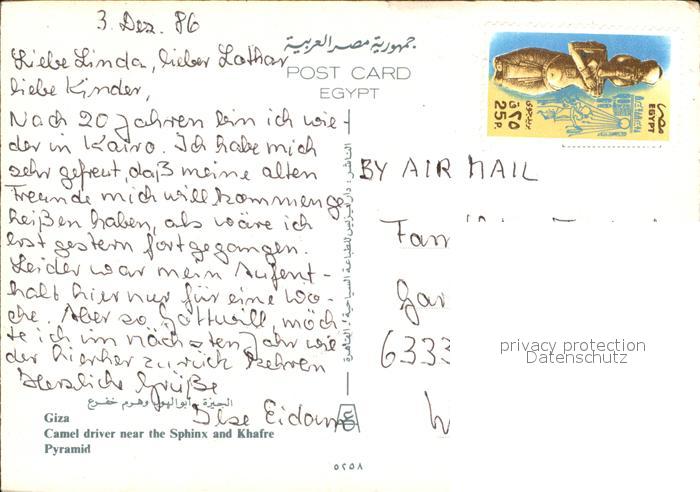 3. Dez. 86
Liebe Linda, lieber Lothar,
liebe Kinder,
Nach 20 Jahren bin ich wie-
der in Kairo. Ich habe mich
sehr gefreut, daß meine alten
Freunde mich willkommen ge-
heißen haben, als wäre ich
erst gestern fortgegangen.
Leider war mein Aufent-
halt hier nur für eine Wo-
che. Aber so Gott will, möch-
te ich im nächsten Jahr wie-
der hierher zurück kehren
Herzliche Grüße
Ilse
جمهورية مصر العربية
POST CARD
EGYPT
مصر
EGYPT
٢٥
25 P.
BY AIR MAIL
Fam
6333
privacy protection
Datenschutz
الجيزة - أبوالهول وهرم خفرع
Giza
Camel driver near the Sphinx and Khafre
Pyramid
٥٢٥٨